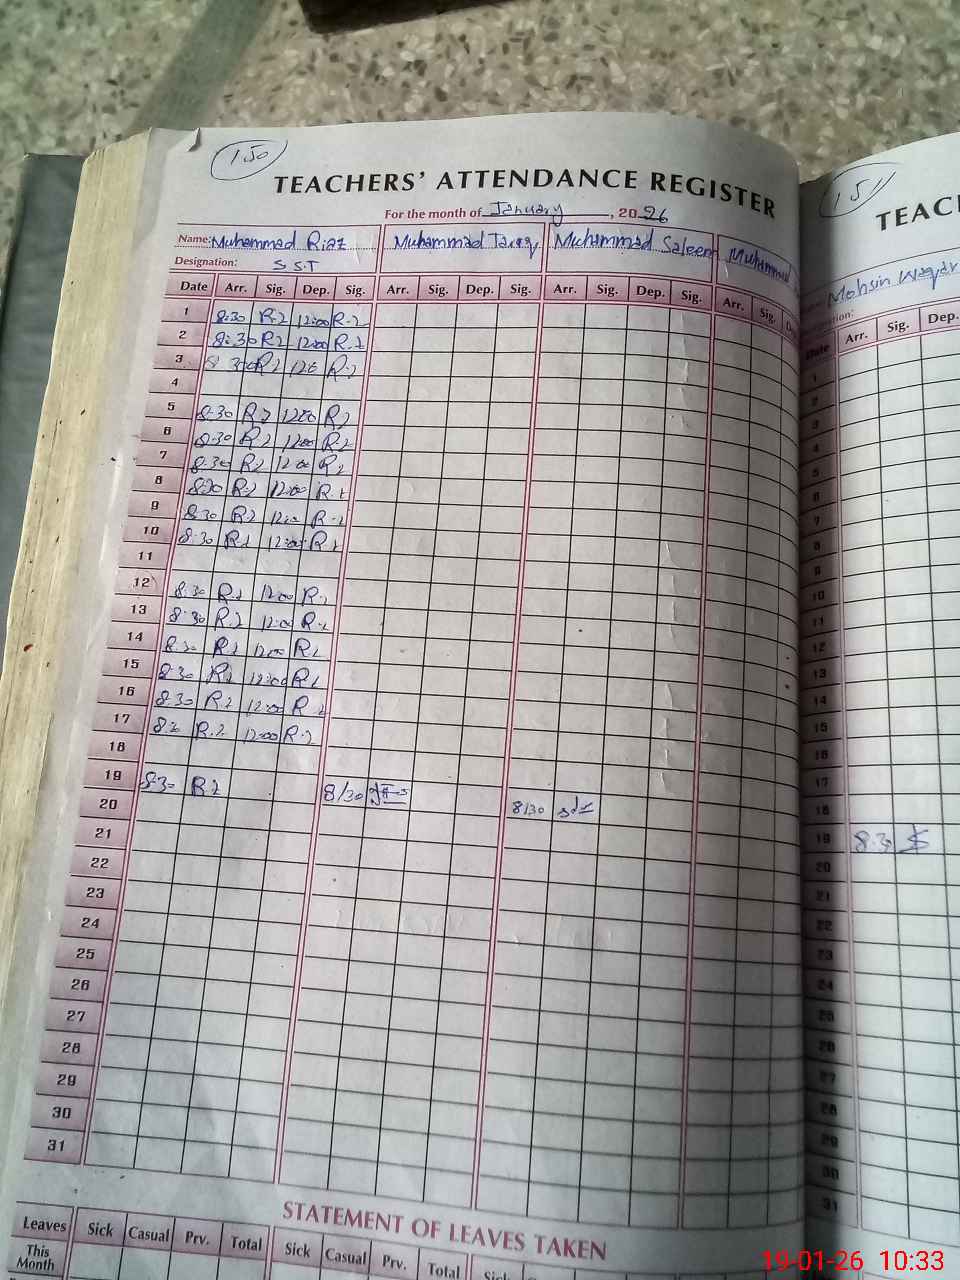 150
151
TEACHERS' ATTENDANCE REGISTER
TEAC
For the month of January, 2026
Name: Muhammad Riaz Muhammad Tariq Muhammad Saleem Muhammad
Mohsin Waqar
Designation: S.S.T
Date Arr. Sig. Dep. Sig. Arr. Sig. Dep. Sig. Arr. Sig. Dep. Sig. Arr. Sig.
Date Arr. Sig. Dep.
1 8:30 R.z 12:00 R.z
2 8:30 R.z 12:00 R.z
3 8 300 R.z 120 R.z
4
5 8:30 R.z 12:00 R.z
6 8:30 R.z 12:00 R.z
7 8:30 R.z 12:00 R.z
8 8:30 R.z 12:00 R.z
9 8:30 R.z 12:00 R.z
10 8:30 R.z 12:00 R.z
11
12 8:30 R.z 12:00 R.z
13 8:30 R.z 12:00 R.z
14 8:30 R.z 12:00 R.z
15 8:30 R.z 12:00 R.z
16 8:30 R.z 12:00 R.z
17 8:30 R.z 12:00 R.z
18
19 8:30 R.z 8/30 8/30
20
21
22
23
24
25
26
27
28
29
30
31
1
2
3
4
5
6
7
8
9
10
11
12
13
14
15
16
17
18
19 8:30
20
21
22
23
24
25
26
27
28
29
30
31
STATEMENT OF LEAVES TAKEN
Leaves Sick Casual Prv. Total Sick Casual Prv. Total
This Month
19-01-26 10:33